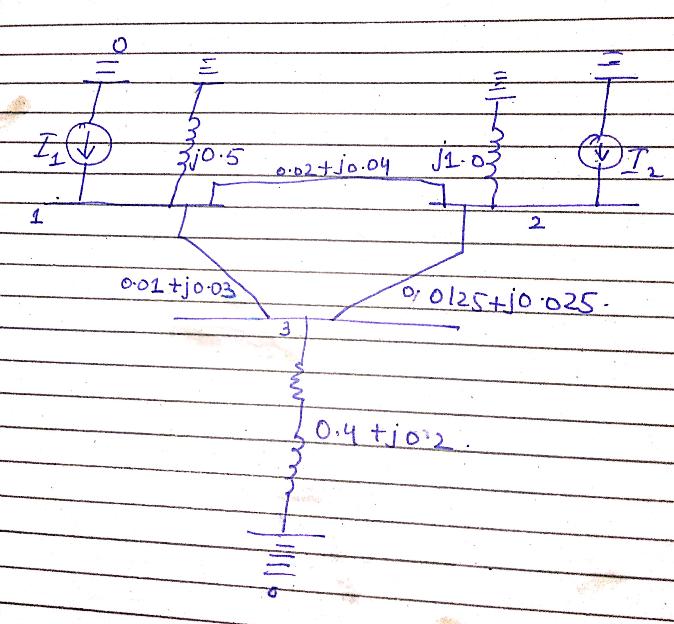 0
I1
j0.5
0.02+j0.04
j1.0
I2
1
2
0.01+j0.03
0.0125+j0.025.
3
0.4+j0.2.
0